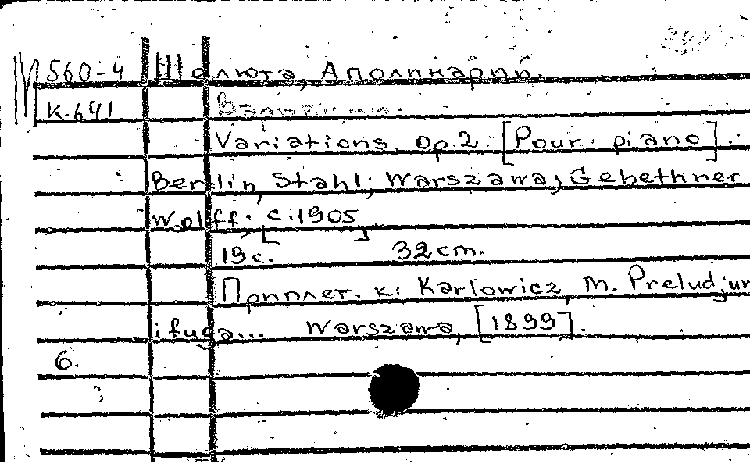 М 560-4 Шалюта, Аполинарий.
К-641
Variations, op.2. [Pour piano].
Berlin, Stahl; Warszawa, Gebethner
Wolff. [c.1905]
19 с. 32 cm.
Приплет. к: Karlowicz, M. Preludjum
i fuga... Warszawa, [1899].
6.